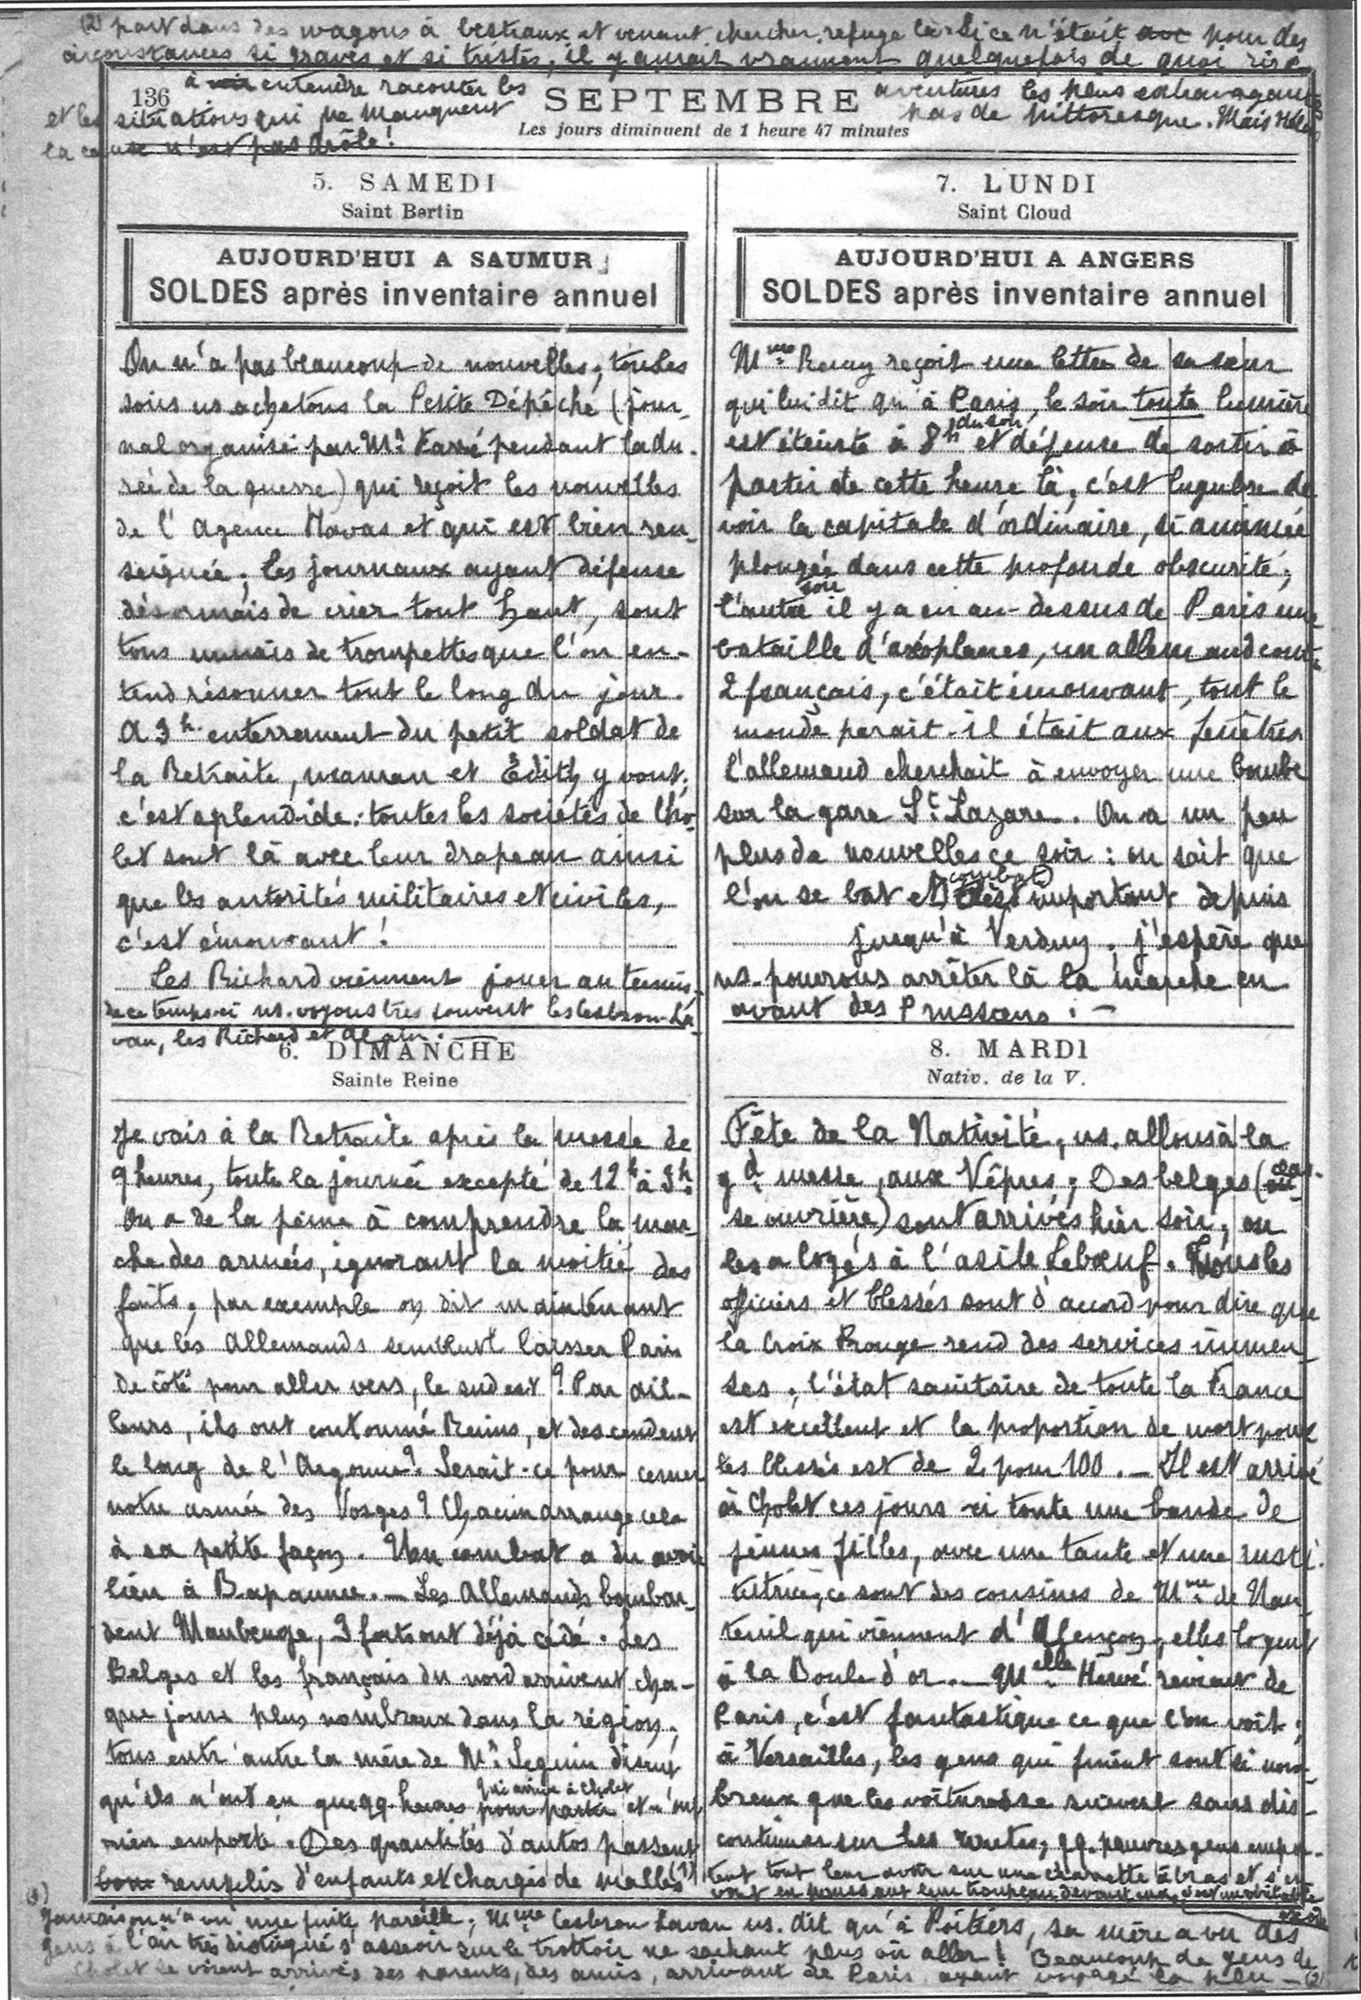 (2) part dans des wagons à bestiaux et venant chercher refuge là. Si ce n'était pour des
circonstances si graves et si tristes, il y aurait vraiment quelquefois de quoi rire
à entendre raconter les aventures les plus extravagantes
et les situations qui ne manquent pas de pittoresque. Mais Hélas
la cause n'est pas drôle !
136
SEPTEMBRE
Les jours diminuent de 1 heure 47 minutes
5. SAMEDI
Saint Bertin
AUJOURD'HUI A SAUMUR
SOLDES après inventaire annuel
On n'a pas beaucoup de nouvelles ; tous les
soirs ns achetons la Petite Dépêche (jour-
nal organisé par Mr. Farré pendant la du-
rée de la guerre) qui reçoit les nouvelles
de l'Agence Havas et qui est bien ren-
seignée ; les journaux ayant défense
désormais de crier tout haut, sont
tous munis de trompettes que l'on en-
tend résonner tout le long du jour.
A 3h enterrement du petit soldat de
la Retraite, maman et Edith y vont,
c'est splendide : toutes les sociétés de Cho-
let sont là avec leur drapeau ainsi
que les autorités militaires et civiles,
c'est émouvant !
Les Richard viennent jouer au tennis.
de ce temps-ci ns. voyons très souvent les Cesbron-La-
vau, les Richard et Alain.
6. DIMANCHE
Sainte Reine
Je vais à la Retraite après la messe de
9 heures, toute la journée excepté de 12h à 3h.
On a de la peine à comprendre la mar-
che des armées, ignorant la moitié des
faits ; par exemple on dit maintenant
que les Allemands semblent laisser Paris
de côté pour aller vers, le sud est ? Par ail-
leurs, ils ont contourné Reims, et descendent
le long de l'Argonne ? Serait-ce pour cerner
notre armée des Vosges ? Chacun arrange cela
à sa petite façon. Un combat a du avoir
lieu à Bapaume. — Les Allemands bombar-
dent Maubeuge, 3 forts ont déjà cédé. Les
Belges et les français du nord arrivent cha-
que jour plus nombreux dans la région ;
tous entr'autre la mère de Mr. Seguin disent
qui arrive à Cholet
qu'ils n'ont eu que qq. heures pour partir et n'ont
rien emporté. Des quantités d'autos passent
remplis d'enfants et chargés de malles (1)
7. LUNDI
Saint Cloud
AUJOURD'HUI A ANGERS
SOLDES après inventaire annuel
Mme reçoit une lettre de sa sœur
qui lui dit qu'à Paris, le soir toute lumière
est éteinte à 8h du soir et défense de sortir à
partir de cette heure là, c'est lugubre de
voir la capitale d'ordinaire, si animée
plongée dans cette profonde obscurité ;
l'autre soir il y a eu au-dessus de Paris une
bataille d'aéoplanes, un allemand contre
2 français, c'était émouvant, tout le
monde parait-il était aux fenêtres
l'allemand cherchait à envoyer une bombe
sur la gare St. Lazare. On a un peu
plus de nouvelles ce soir : on sait que
l'on se bat et (combat) important depuis
jusqu'à Verdun. j'espère que
ns. pourrons arrêter là la marche en
avant des Prussiens. —
8. MARDI
Nativ. de la V.
Fête de la Nativité, ns. allons à la
gd. messe, aux Vêpres ; Des belges (clas-
se ouvrière) sont arrivés hier soir, on
les a logés à l'asile Lebœuf. Tous les
officiers et blessés sont d'accord pour dire que
la Croix Rouge rend des services immen-
ses ; l'état sanitaire de toute la France
est excellent et la proportion de mort pour
les blessés est de 2 pour 100. — Il est arrivé
à Cholet ces jours-ci toute une bande de
jeunes filles, avec une tante et une insti-
tutrice, ce sont des cousines de Mme de Nan-
teuil qui viennent d'Alençon, elles logent
à la Boule d'or. — Melle Hervé revient de
Paris, c'est fantastique ce que l'on voit ;
à Versailles, les gens qui fuient sont si nom-
breux que les voitures se suivent sans dis-
continuer sur les routes, qq. pauvres gens empor-
tent tout leur avoir sur une charrette à bras et s'en
vont en poussant leur troupeau devant eux, c'est un véritable
exode
(1) Jamais on n'a vu une fuite pareille ; Mme Cesbron-Lavau ns. dit qu'à Poitiers, sa mère a vu des
gens à l'air très distingué s'asseoir sur le trottoir ne sachant plus où aller ! Beaucoup de gens de
Cholet se voient arrivés des parents, des amis, arrivant de Paris ayant voyagé la plu — (2)